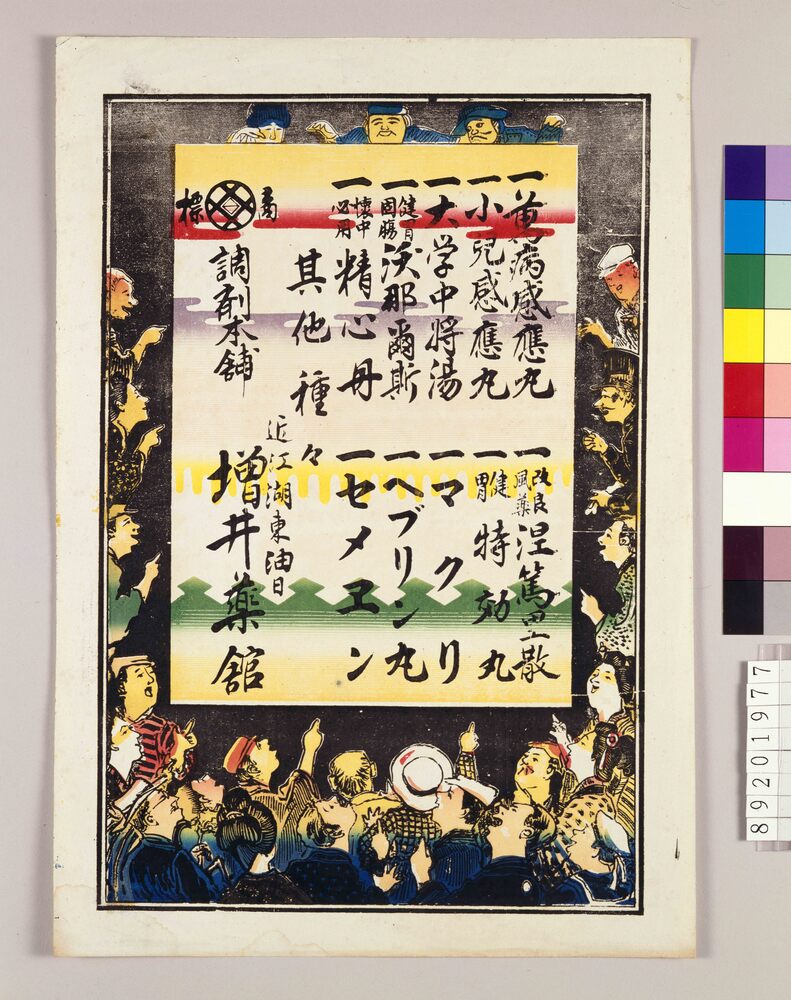 一 萬病感應丸
一 小児感應丸
一 大学中将湯
一 健胃固腸 沃那爾斯
一 懐中必用 精心丹
其他種々
一 改良風薬 涅篤里散
一 健胃 特効丸
一 マクリ
一 ヘブリン丸
一 セメヱン
商標
調剤本舗
近江湖東油日
増井薬舘
89201977